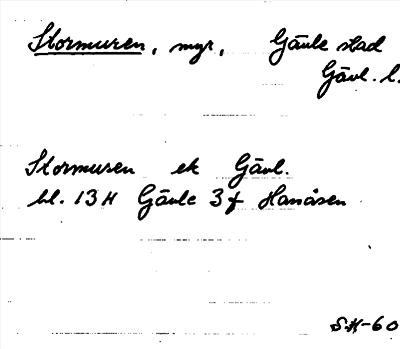 Stormuren, myr, Gävle stad
Gävl. l.
Stormuren ek Gävl.
bl. 13 H Gävle 3 f Hanåsen
S.H-60